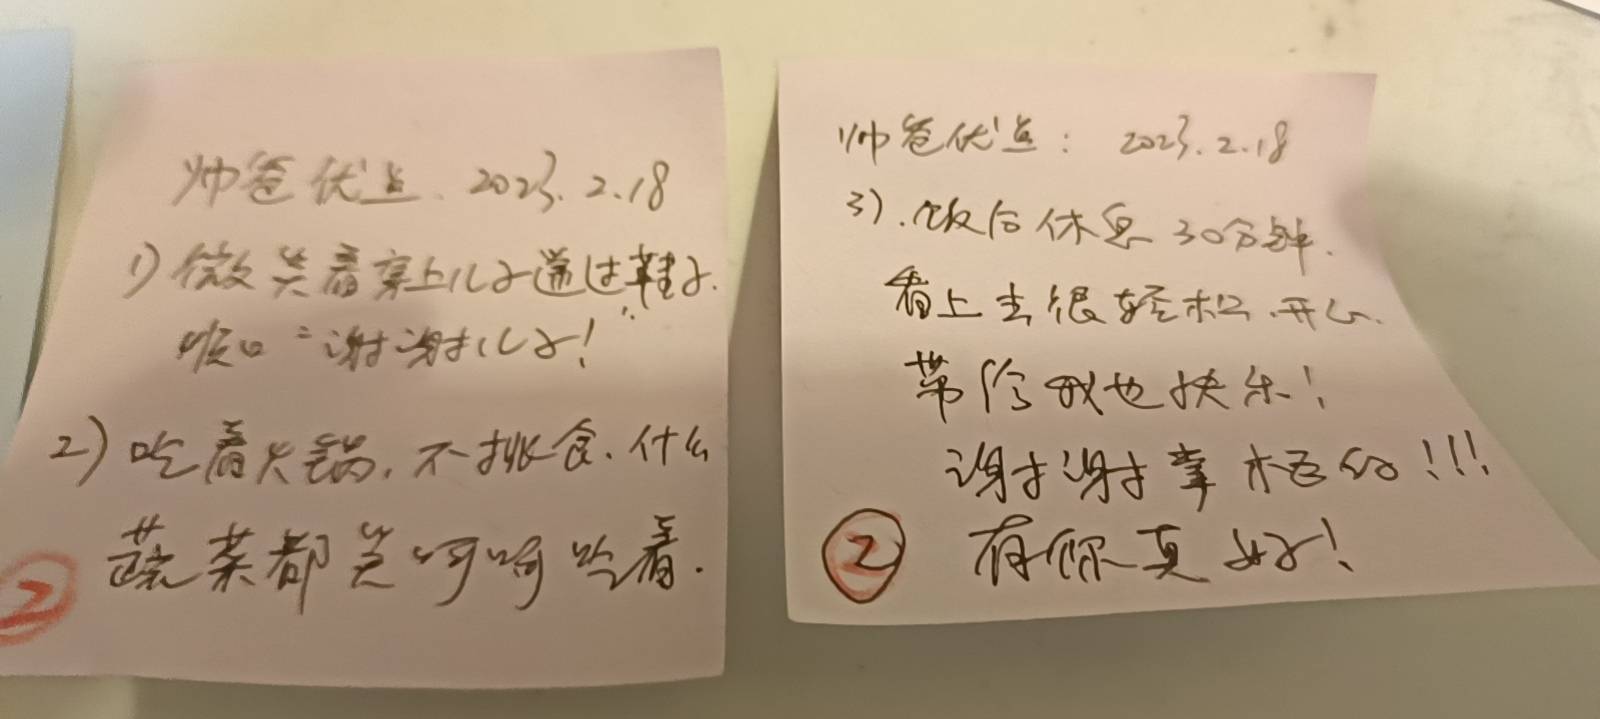 帅爸优点. 2023.2.18
1) 微笑着穿上儿子递过鞋子.
顺口"谢谢儿子!"
2) 吃着火锅, 不挑食. 什么
蔬菜都笑呵呵吃着.
2
帅爸优点: 2023.2.18
3). 饭后休息30分钟.
看上去很轻松.开心.
带给我也快乐!
谢谢幸福的!!!
有你真好!
2